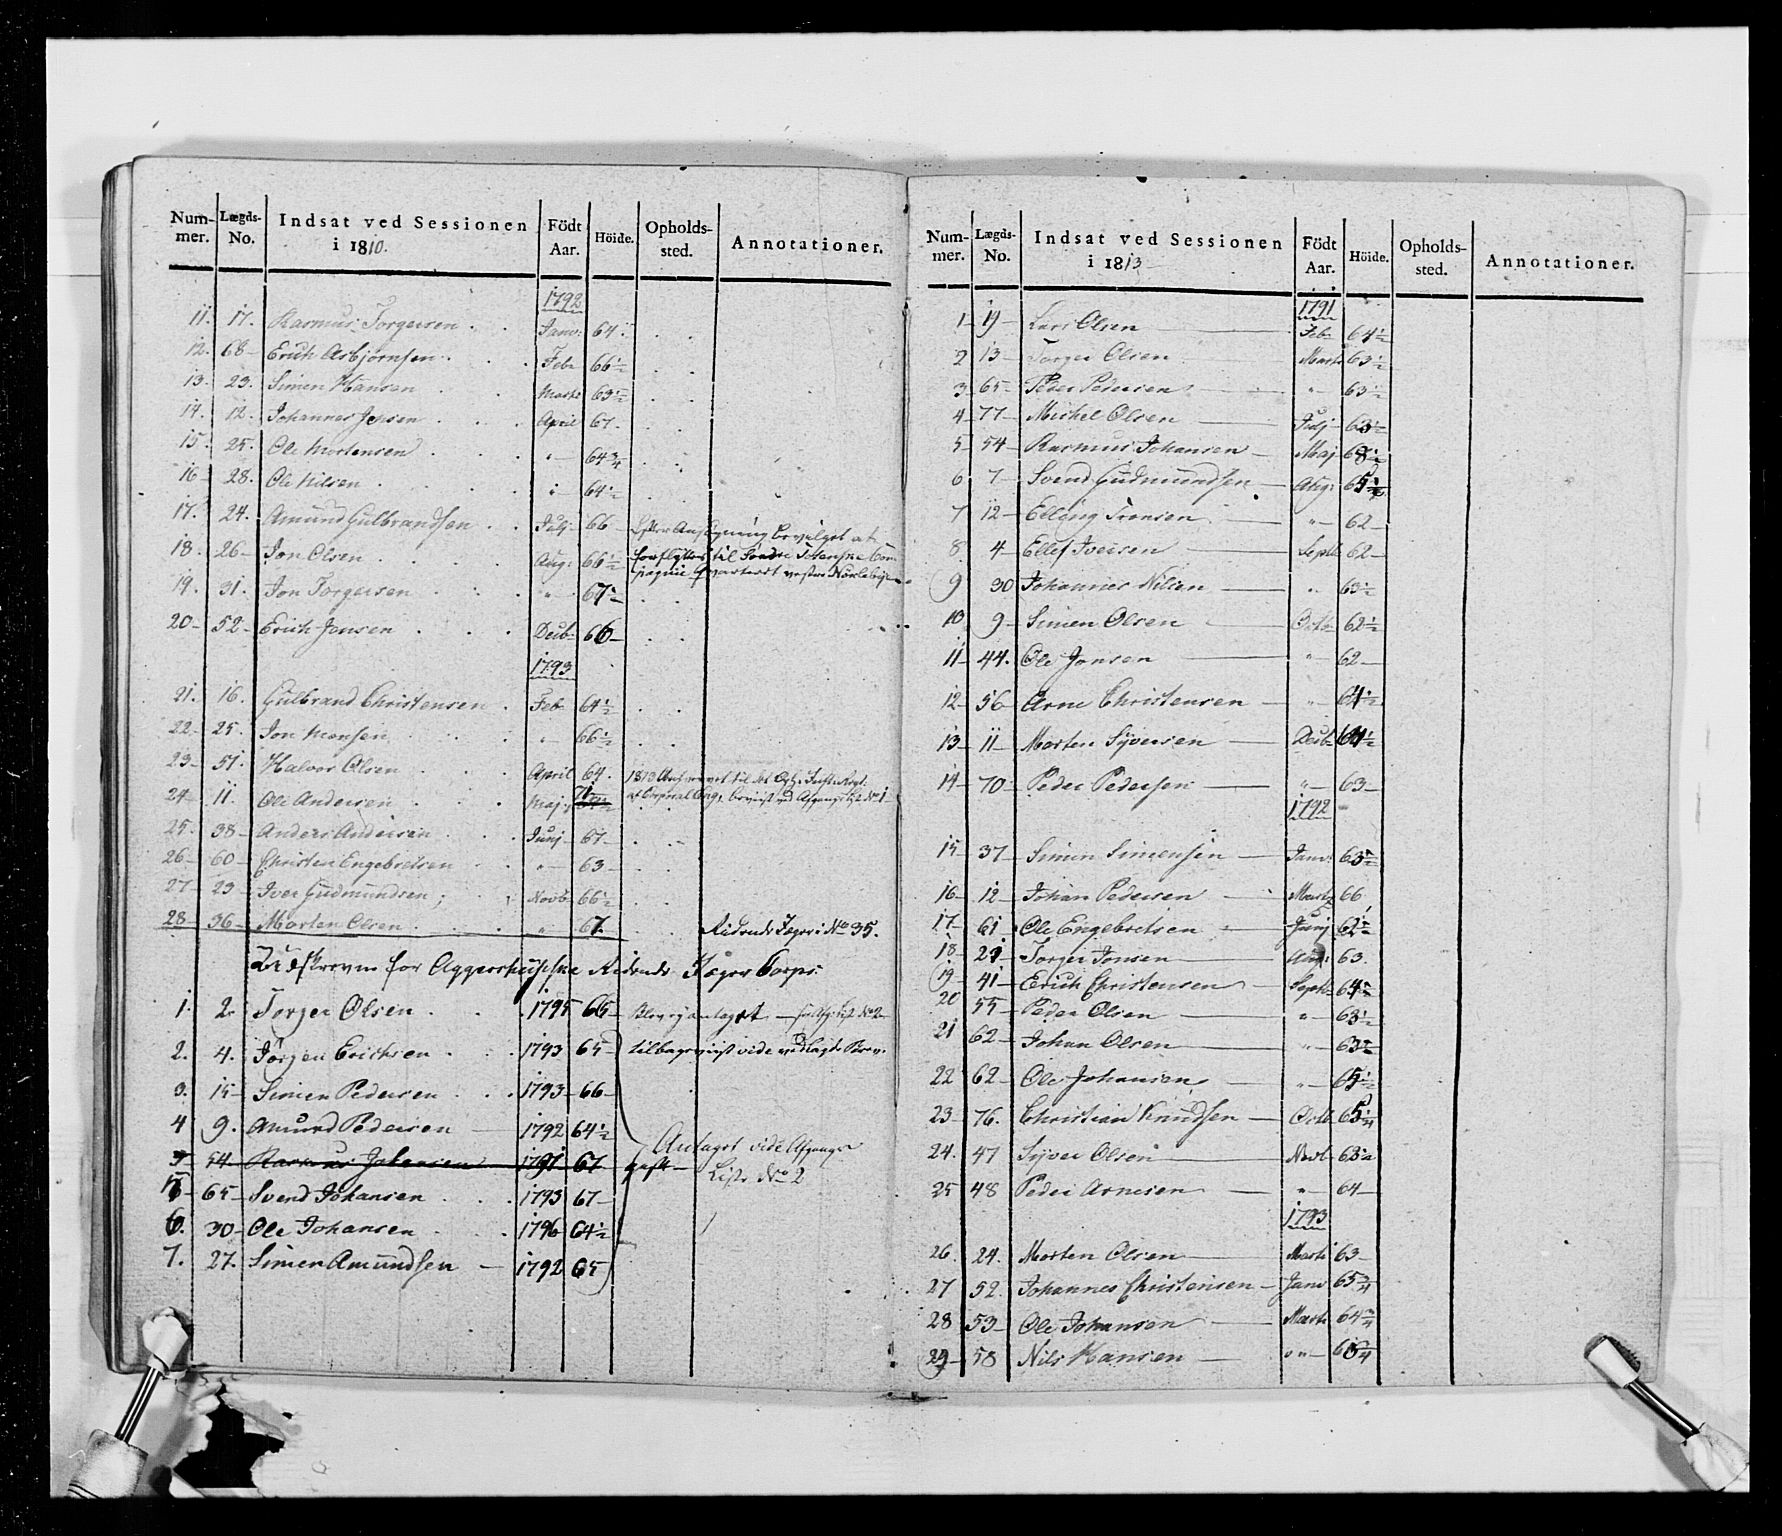 Num- Lægds- Indsat ved Sessionen Födt Höide. Opholds- Annotationer.
mer. No. i 1810. Aar. sted.
1792
11. 17. Rasmus Torgersen Janv: 64.
12. 68 Erich Asbjørnsen Febr 66½
13. 23. Simen Hansen Marts 63½
14. 12. Johannes Jensen April 67.
15. 25. Ole Mortensen " 64¾
16 28. Ole Nilsen " 64½
17. 24. Amund Gulbrandsen July 66 Efter Ansøgning bevilget at
18. 26 Jon Olsen Aug: 66½ forflyttes til Søndre Totenske Com
pagnie
19. 31. Jon Torgersen " 67½
20 52 Erich Jansen Decb 66
1793
21. 16. Gulbrand Christensen Feb 64½
22 25. Jon Monsen " 66½
23 51. Halvor Olsen April 64.
24 11. Ole Andersen Maj
25. 38 Anders Andersen Junj 67
26 60 Christen Engebretsen " 63
27 23 Iver Gudmundsen Novb 66½
28 36 Morten Olsen " 67. Ridende Jæger i No 35.
Udskreven for Aggershuusske Ridende Jæger Corps:
1. 2. Torger Olsen 1795 65 Blev ej antaget
2. 4. Jørgen Erichsen 1793 65 tilbageviist vide vedlagde Brev.
3. 15 Simen Pedersen 1793 66
4 9. Amund Pedersen 1792 64½ Antaget vide Afgangs
5 54 Rasmus Johansen 1791 67 Liste No 2
5 65 Svend Johansen 1793 67
6. 30 Ole Johansen 1796 64½
7. 27. Simen Amundsen 1792 65
Num- Lægds- Indsat ved Sessionen Födt Höide. Opholds- Annotationer.
mer. No. i 1813 Aar. sted.
1791
1 19 Lars Olsen Feb 64½
2 13 Torger Olsen Marts 63½
3 65 Peder Pedersen " 63½
4 77 Michel Olsen July 63½
5 54 Rasmus Johansen Maj 68½
6 7 Svend Gudmundsen Aug:
7 12 Elling Tronsen " 62
8 4 Ellef Iversen Septb 62
9 30 Johannes Nilsen " 63½
10 9 Simen Olsen Octb 62½
11 44. Ole Jonsen " 62
12 56 Arne Christensen " 64½
13 11 Morten Syversen Decb 64½
14 70 Peder Pedersen " 63
1792
15 37 Simen Simensen Janv: 63½
16 12 Johan Pedersen Marts 66
17 61 Ole Engebretsen Junj 62½
18 21 Torger Jonsen Aug: 63.
19 41 Erich Christensen Septb 64½
20 55 Peder Olsen " 63½
21 62 Johan Olsen " 63½
22 62 Ole Johansen " 65½
23 76. Christian Knudsen Octb 65¼
24. 47 Syver Olsen Novb 63½
25 48 Peder Arnesen " 64
1793
26. 24. Morten Olsen Marts 63
27 52. Johannes Christensen Janv 65¾
28 53 Ole Johansen Marts 64¾
29 58 Nils Hansen "